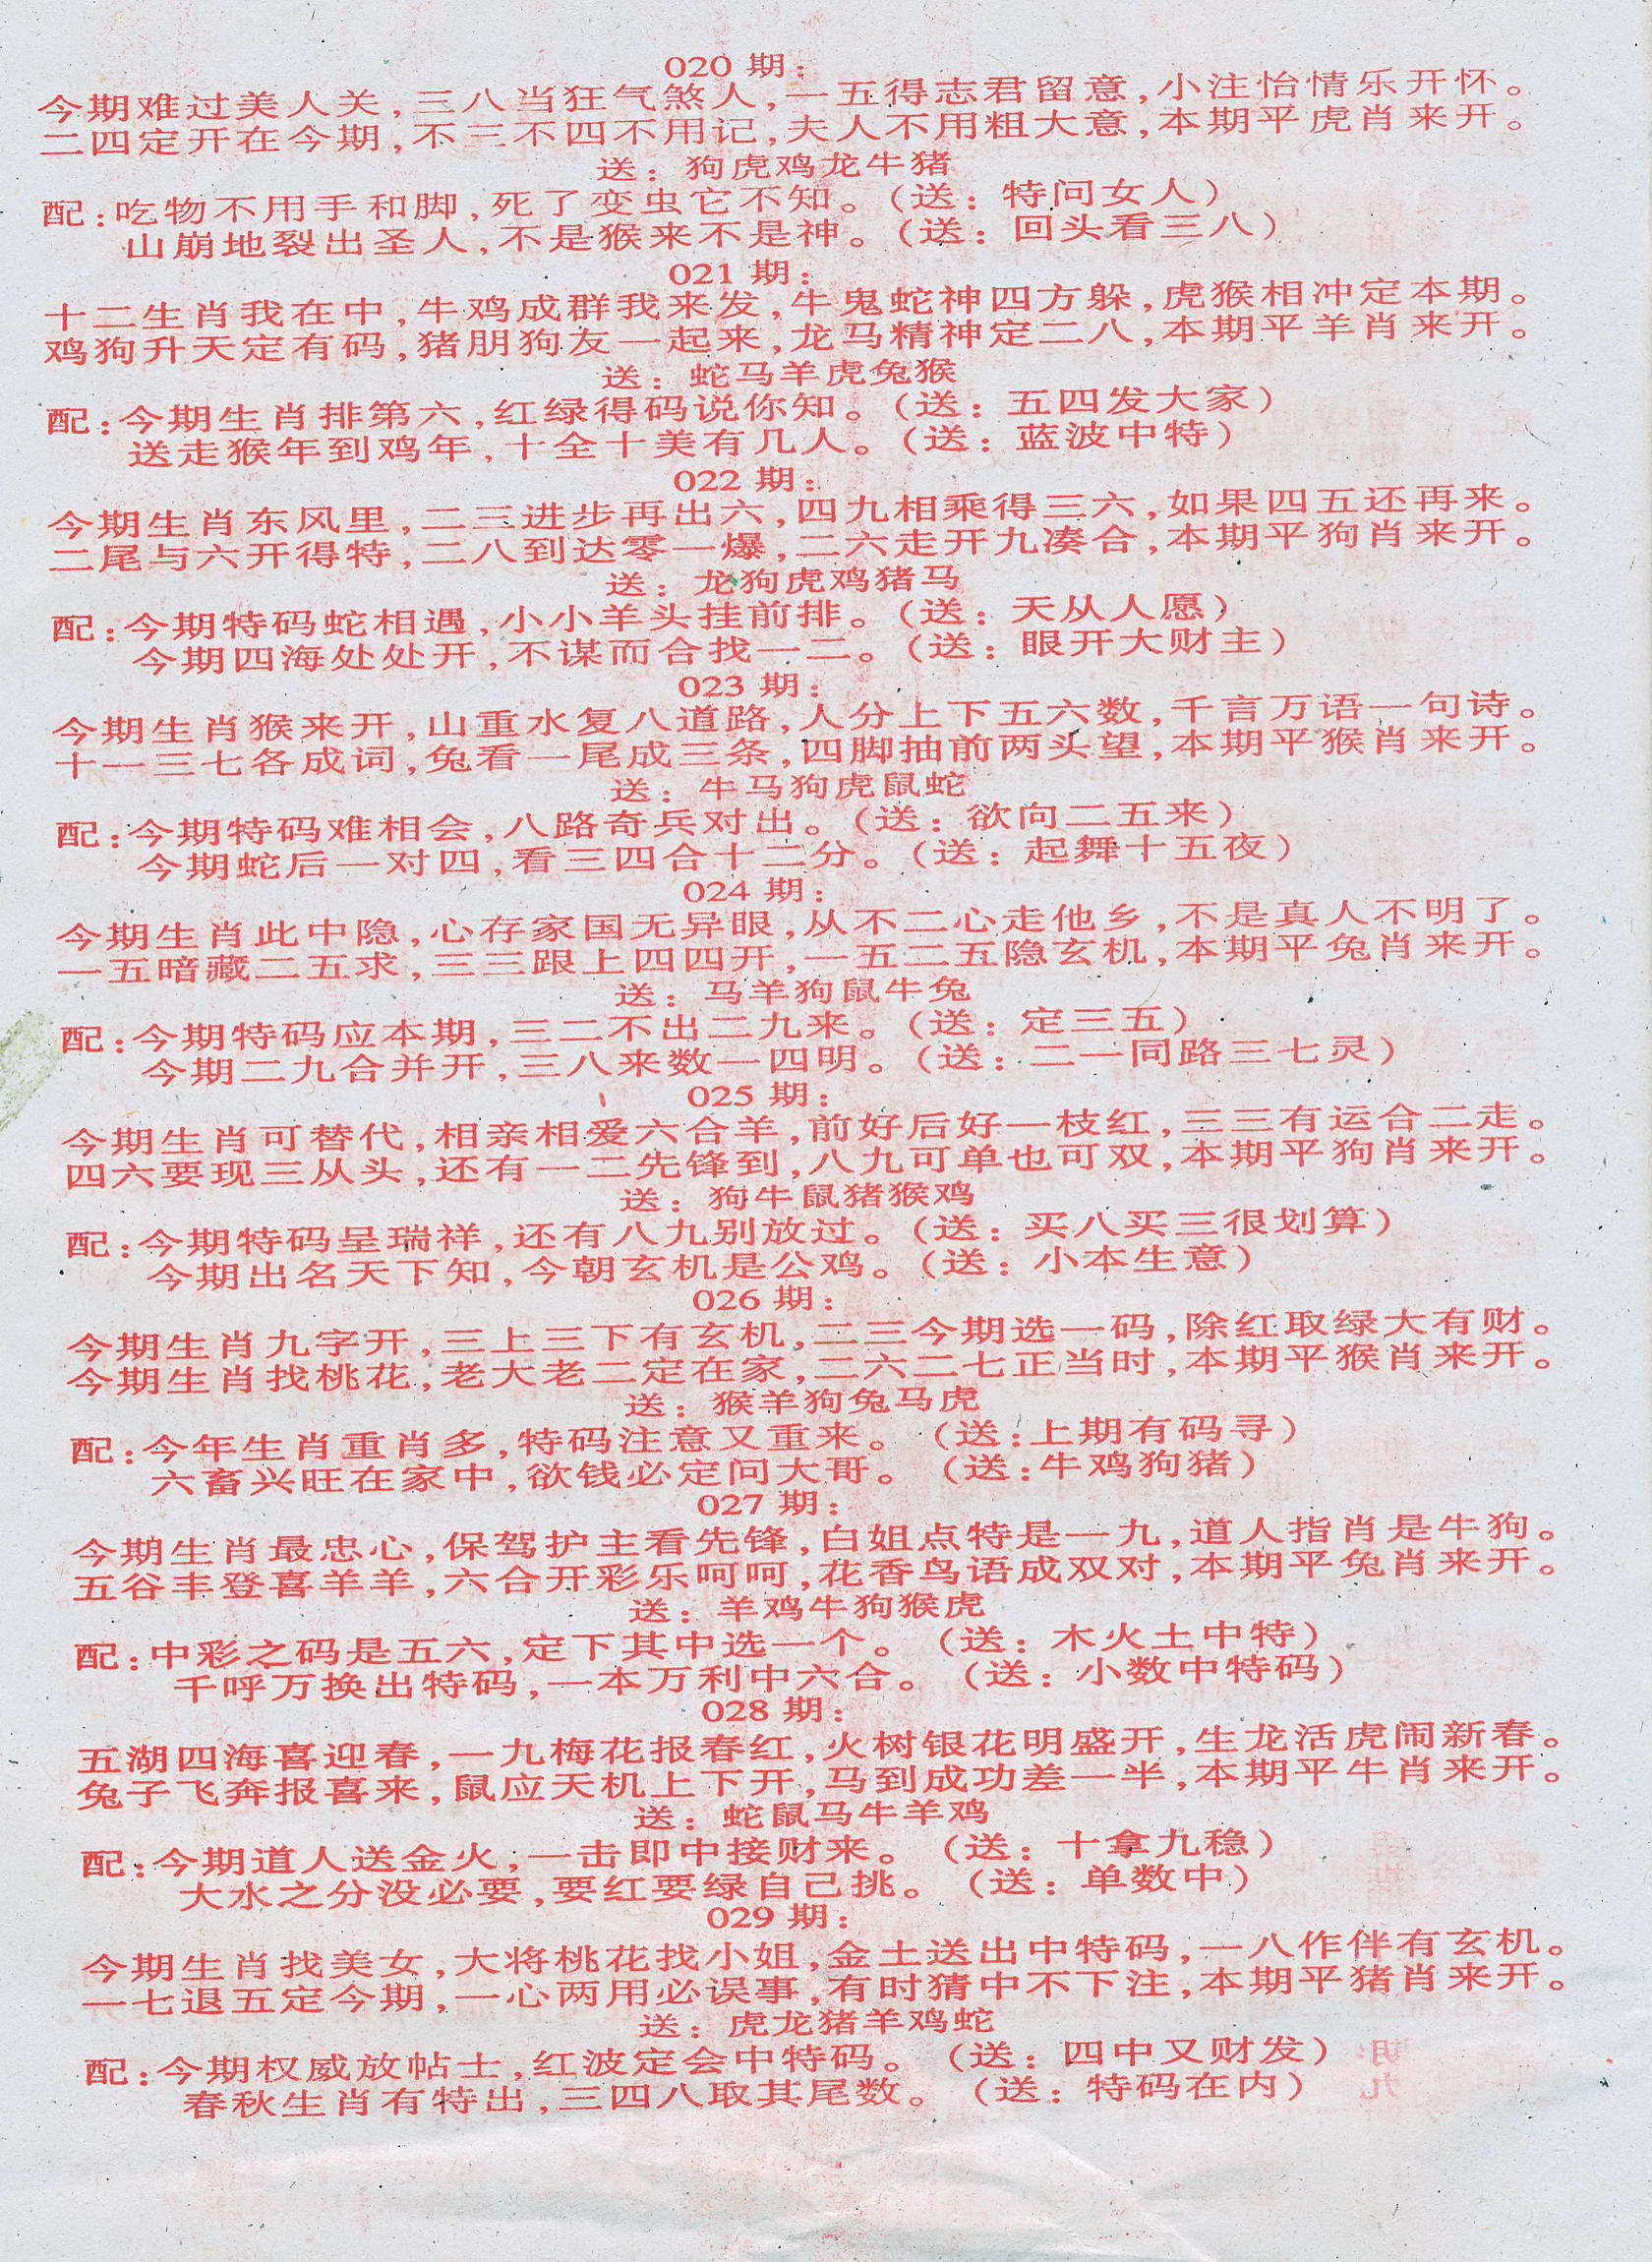 020 期：
今期难过美人关,三八当狂气煞人,一五得志君留意,小注怡情乐开怀。
二四定开在今期,不三不四不用记,夫人不用粗大意,本期平虎肖来开。
送：狗虎鸡龙牛猪
配:吃物不用手和脚,死了变虫它不知。(送：特问女人)
山崩地裂出圣人,不是猴来不是神。(送：回头看三八)
021 期：
十二生肖我在中,牛鸡成群我来发,牛鬼蛇神四方躲,虎猴相冲定本期。
鸡狗升天定有码,猪朋狗友一起来,龙马精神定二八,本期平羊肖来开。
送：蛇马羊虎兔猴
配:今期生肖排第六,红绿得码说你知。(送：五四发大家)
送走猴年到鸡年,十全十美有几人。(送：蓝波中特)
022 期：
今期生肖东风里,二三进步再出六,四九相乘得三六,如果四五还再来。
二尾与六开得特,二八到达零一爆,二六走开九凑合,本期平狗肖来开。
送：龙狗虎鸡猪马
配:今期特码蛇相遇,小小羊头挂前排。(送：天从人愿)
今期四海处处开,不谋而合找一二。(送：眼开大财主)
023 期：
今期生肖猴来开,山重水复八道路,人分上下五六数,千言万语一句诗。
十一三七各成词,兔看一尾成三条,四脚抽前两头望,本期平猴肖来开。
送：牛马狗虎鼠蛇
配:今期特码难相会,八路奇兵对出。(送：欲向二五来)
今期蛇后一对四,看三四合十二分。(送：起舞十五夜)
024 期：
今期生肖此中隐,心存家国无异眼,从不二心走他乡,不是真人不明了。
一五暗藏二五求,三三跟上四四开,一五二五隐玄机,本期平兔肖来开。
送：马羊狗鼠牛兔
配:今期特码应本期,三二不出二九来。(送：定三五)
今期二九合并开,三八来数一四明。(送：二一同路三七灵)
025 期：
今期生肖可替代,相亲相爱六合羊,前好后好一枝红,三三有运合二走。
四六要现三从头,还有一二先锋到,八九可单也可双,本期平狗肖来开。
送：狗牛鼠猪猴鸡
配:今期特码呈瑞祥,还有八九别放过。(送：买八买三很划算)
今期出名天下知,今朝玄机是公鸡。(送：小本生意)
026 期：
今期生肖九字开,三上三下有玄机,二三今期选一码,除红取绿大有财。
今期生肖找桃花,老大老二定在家,二六二七正当时,本期平猴肖来开。
送：猴羊狗兔马虎
配:今年生肖重肖多,特码注意又重来。(送:上期有码寻)
六畜兴旺在家中,欲钱必定问大哥。(送:牛鸡狗猪)
027 期：
今期生肖最忠心,保驾护主看先锋,白姐点特是一九,道人指肖是牛狗。
五谷丰登喜羊羊,六合开彩乐呵呵,花香鸟语成双对,本期平兔肖来开。
送：羊鸡牛狗猴虎
配:中彩之码是五六,定下其中选一个。(送：木火土中特)
千呼万换出特码,一本万利中六合。(送：小数中特码)
028 期：
五湖四海喜迎春,一九梅花报春红,火树银花明盛开,生龙活虎闹新春。
兔子飞奔报喜来,鼠应天机上下开,马到成功差一半,本期平牛肖来开。
送：蛇鼠马牛羊鸡
配:今期道人送金火,一击即中接财来。(送：十拿九稳)
大水之分没必要,要红要绿自己挑。(送：单数中)
029 期：
今期生肖找美女,大将桃花找小姐,金土送出中特码,一八作伴有玄机。
一七退五定今期,一心两用必误事,有时猜中不下注,本期平猪肖来开。
送：虎龙猪羊鸡蛇
配:今期权威放帖士,红波定会中特码。(送：四中又财发)
春秋生肖有特出,三四八取其尾数。(送：特码在内)